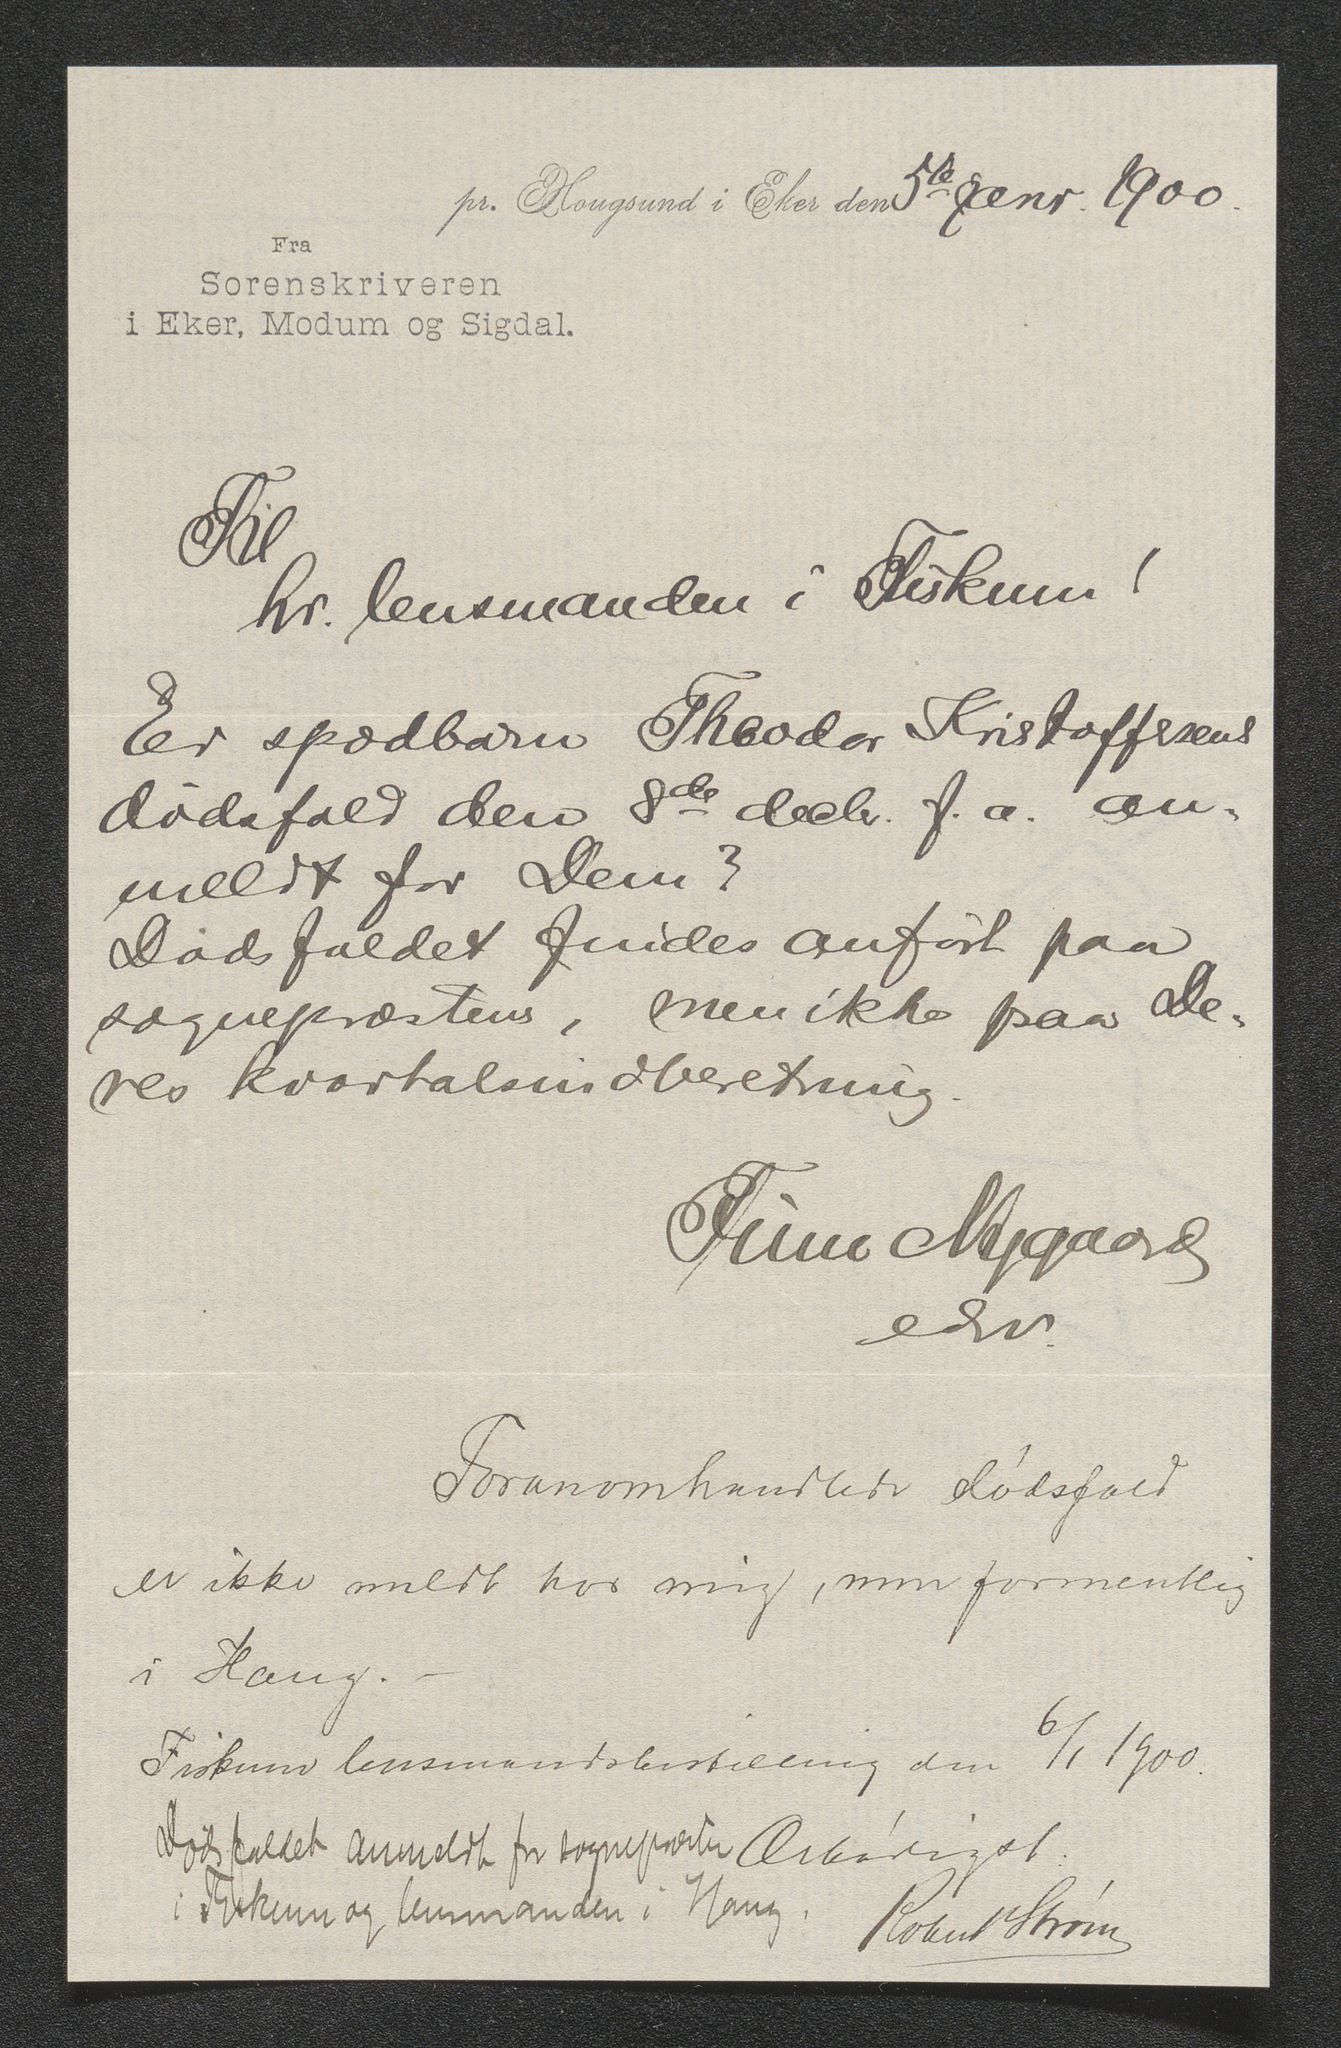 pr. Hougsund i Eker den 5te janr. 1900.
Fra
Sorenskriveren
i Eker, Modum og Sigdal.
Til
hr. lensmanden i Fiskum!
Er spædbarn Theodor Kristoffersens
dødsfald den 8de decbr. f. a. an-
meldt for Dem?
Dødsfaldet findes anført paa
sogneprestens, men ikke paa De-
res kvartalsindberetning.
Finn Nygaard
edsv.
Foranomhandlede dødsfald
er ikke meldt hos mig, men formentlig
i Haug. -
Fiskum lensmandsbestilling den 6/1 1900.
Dødsfaldet anmeldt for sognepresten
i Fiskum og lensmanden i Haug.
Ærbødigst.
Robert Strøm